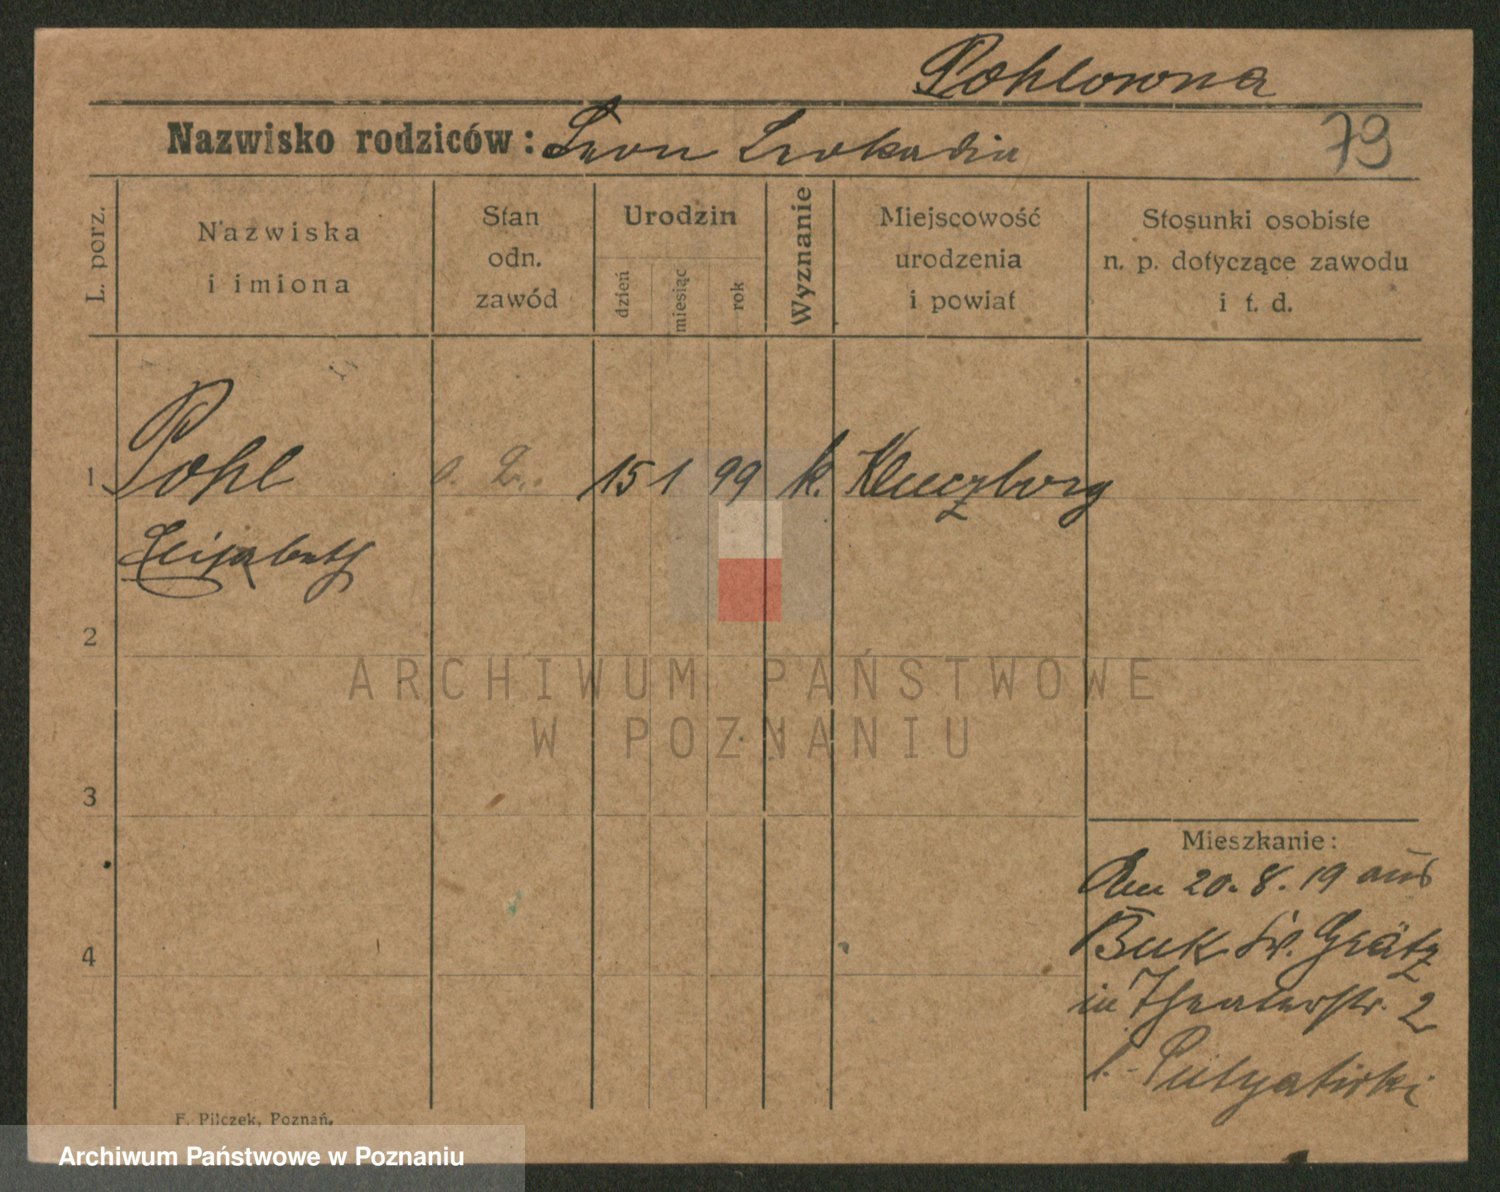 Pohlowna
Nazwisko rodziców: Leon Leokadia
79
L. porz.
Nazwiska
i imiona
Stan
odn.
zawód
Urodzin
dzień
miesiąc
rok
Wyznanie
Miejscowość
urodzenia
i powiat
Stosunki osobiste
n. p. dotyczące zawodu
i t. d.
1 Pohl 15 1 99 k. Kluczborg
Elisabeth
2
3
4
Mieszkanie:
Am 20. 8. 19 aus
Buk Kr. Grätz
in Theaterstr. 2
F. Pilczek, Poznań.
ARCHIWUM PAŃSTWOWE
W POZNANIU
Archiwum Państwowe w Poznaniu